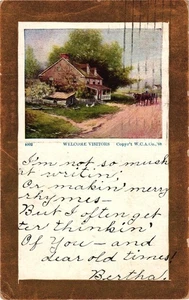 WELCOME VISITORS Copyr't W.G.A.Co., '98
I'm not so much
at writin',
Or makin' merry
rhymes—
But I often get
ter thinkin'
Of You—and
dear old times!
Bertha.